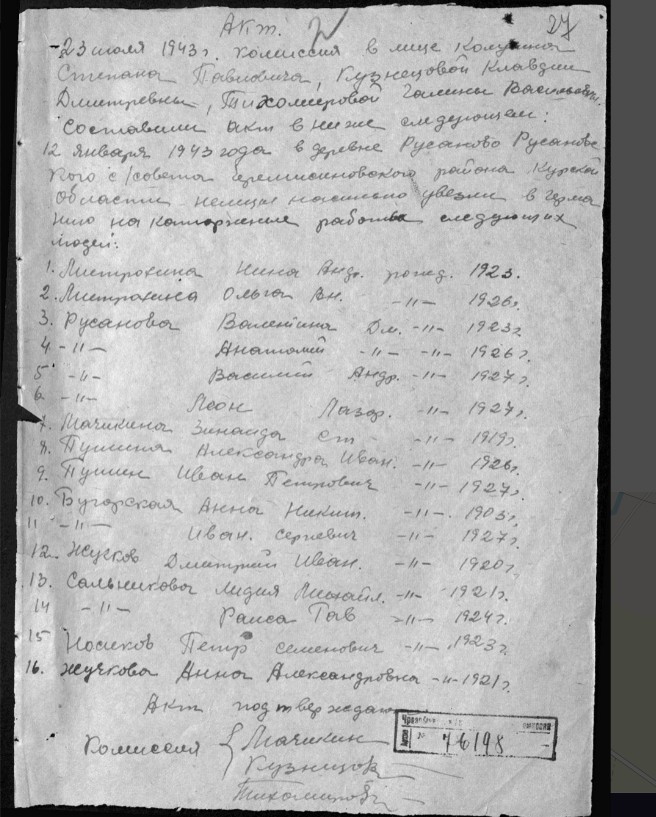 Акт. 27
23 июля 1943 г. комиссия в лице
Степана Павловича, Кузнецовой Клавдии
Дмитревны, Тихомировой Галины Васильевн.
составили акт в ниже следующем:
12 января 1943 года в деревне Русаново Русановс
кого с/совета района Курской
области немцы насильно увезли в герма
нию на каторжные работы следующих
людей:
1. Митрохина Нина Андр. рожд. 1923.
2. Митрохина Ольга Ан. -"- 1926г.
3. Русанова Валентина Дм. -"- 1923г.
4 -"- Анатолий -"- -"- 1926г.
5 -"- Василий Андр. -"- 1927г.
6 -"- Леон Лазар. -"- 1927г.
7. Мачикина Зинаида Ст -"- 1919г.
8. Пушина Александра Иван. -"- 1926г.
9. Пушин Иван Петрович -"- 1927г.
10. Бугорская Анна Никит. -"- 1903г.
11 -"- Иван. сергевич -"- 1927г.
12. Жучков Дмитрий Иван. -"- 1920г.
13. Сальникова Лидия Михайл. -"- 1921г.
14 -"- Раиса Гав -"- 1924г.
15 Носиков Петр семенович -"- 1923г.
16. Жучкова Анна Александровна -"- 1921г.
Акт подтверждаю
Комиссия Мачикин
Кузнецов
Тихомирова
№ 76198